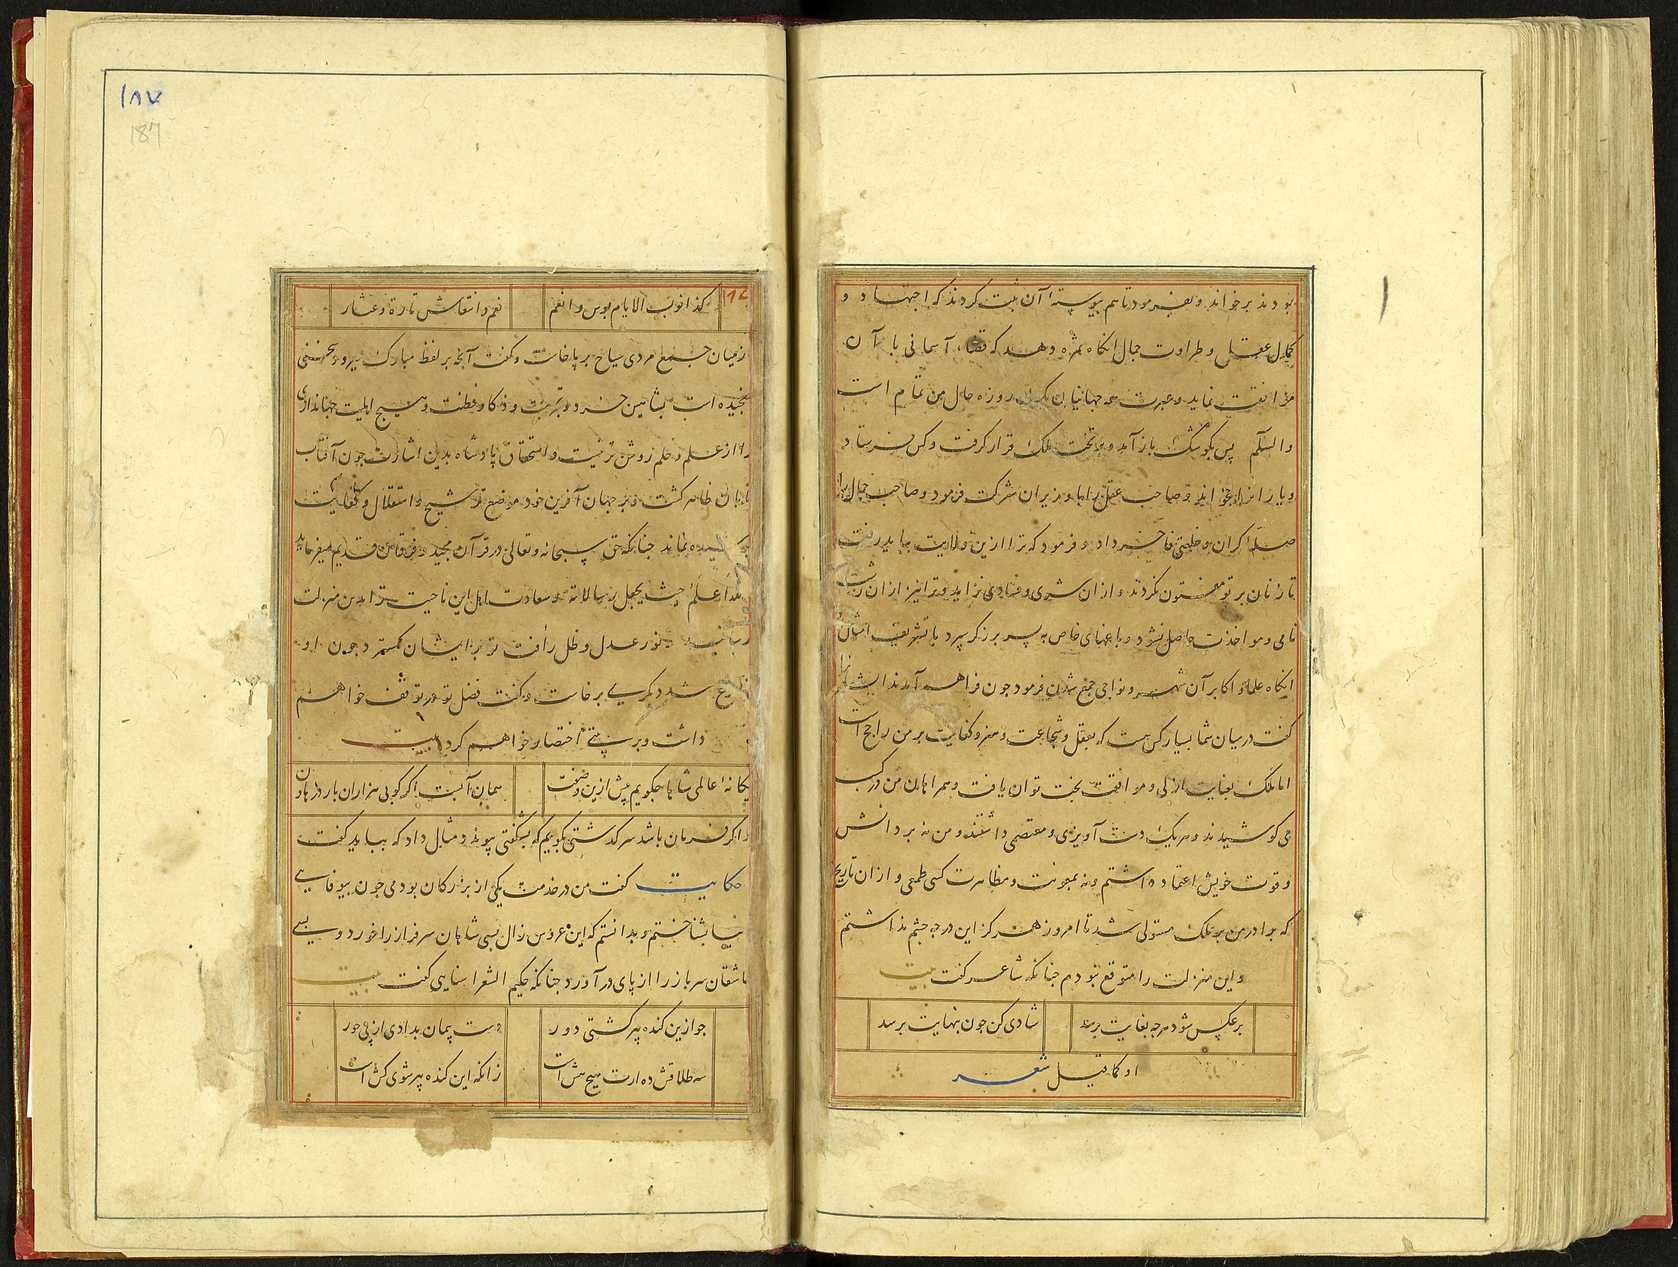 بودند بر خواند و بفرمود تا هم پیوستهٔ آن ثبت کردند که اجتهاد و
کمال عقل و طراوت جمال انگاه ثمره دهد که قضاء آسمانی با آن
موافقت نماید و عبرت همه جهانیان یک روزه حال من تمام است
والسلم پس بکوشک باز آمد و بر تخت ملک قرار گرفت و کس فرستاد
و یارانرا بخواند و صاحب عقل را با وزیران شرکت فرمود و صاحب جمال را
صلهٔ کران و خلعتی فاخر داد و فرمود که ترا ازین ولایت بباید رفت
تا زنان بر تو مفتون نکردند و ازان شری و فسادی نزاید و ترا نیز ازان زشت
نامی و مواخذت حاصل نشود و باغهای خاص به پسر برزکر سپرد با تشریف
انکاه علما و اکابر آن شهر و نواحی جمع شدن فرمود چون فراهم آمدند ایشانرا
کفت در میان شما بسیار کس هست که بعقل و شجاعت و هنر و کفایت بر من راجح است
اما ملک بعنایت ازلی و موافقت بخت توان یافت و همراهان من در کسب
می کوشیدند و هر یک دست آویزی و معتصمی داشتند و من نه بر دانش
و قوت خویش اعتماد داشتم و نه بمعونت و مظاهرت کسی طمعی و ازان تاریخ
که برادر من بر ملک مستولی شد تا امروز هرکز این درجه چشم نداشتم
و این منزلت را متوقع نبودم چنانکه شاعر کفت بیت
برعکس شود هرچه بغایت برسد شادی کن چون بنهایت برسد
او کما قیل شعر
۱۸۷
187
کذا نوب الایام بوس و انعم نعم و انتعاش تارة و عثار
از میان جمع مردی سیاح بر پا خاست و کفت آنچه بر لفظ مبارک میرود سخنی
سنجیده است بشاهین خرد و تجربت و ذکا و فطنت و هیچ اهلیت جهانداری
را از علم و حلم روشن تر نیست و استحقاق پادشاه بدین اشارت چون آفتاب
تابان ظاهر کشت و بر جهان آفرین خود موضع ترشیح و استقلال و کفایت
پوشیده نماند چنانکه حق سبحانه و تعالی در قرآن مجید و فرقان قدیم میفرماید
الله اعلم حیث یجعل رسالاته و سعادت اهل این ناحیت ترا بدین منزلت
رسانید و نور عدل و ظل رأفت تو بر ایشان کسترد چون او
فارغ شد دیکری برخاست و کفت فضل تو در توقف خواهم
داشت و بر بیتی اختصار خواهم کرد بیت
یکانهٔ عالمی شاها چکویم پیش ازین وصفت همان آبست اکر کوبی هزاران بار در هاون
و اکر فرمان باشد سرکذشتی بکویم که بشکفتی پیوندد مثال داد که بباید کفت
حکایت کفت من در خدمت یکی از بزرکان بودمی چون بیوفایی
دنیا بشناختم و بدانستم که این عروس زال بسی شاهان سرفراز را خورد و بسی
عاشقان سرباز را از پای درآورد چنانکه حکیم الشعرا سنایی کفت بیت
جوازین کنده پیر کشتی دور دست پیمان بدادی از پی حور
سه طلاقش ده ارت هیچ هش است زانکه این کنده پیر شوی کش است